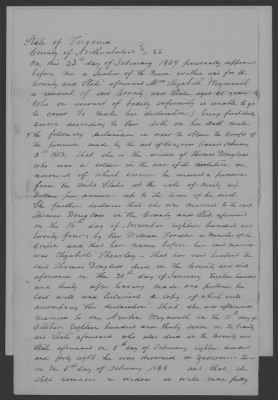 State of Virginia
County of Northumberland } SS
On this 23rd day of February 1854 personally appeared
before me a Justice of the Peace within and for the
County and State aforesaid Mrs Elizabeth Weymouth
a resident of said County and State aged 68 years
Who on account of bodily infirmity is unable to go
to court to make her declaration, being first duly
sworn according to law doth on her oath make
the following declaration in order to obtain the benefit of
the provision made by the act of Congress passed February
3rd 1853. That she is the widow of Thomas Douglass
who was a soldier in the war of the revolution on
account of which service he received a pension
from the United States at the rate of
Dollars per annum up to the time of his death
She further declares that she was married to the said
Thomas Douglass in the County and State aforesaid
on the 16th day of November eighteen hundred and
twenty four by Rev William a minister of the
Gospel and that her name before her said marriage
was Elizabeth that her said husband the
said Thomas Douglass died in the County and State
aforesaid on the 20th day of January Eighteen hundred
and thirty after having made and published his
last will and testament a copy of which will
accompany this declaration that she was afterwards
married to one Weymouth on the 11th day of
October Eighteen hundred and thirty in the County
and State aforesaid who also died in the County and
State aforesaid on 5th day of February Eighteen hundred
and forty eight he was drowned in
on the 5th day of February 1848 and that she
still remains a widow as will more fully